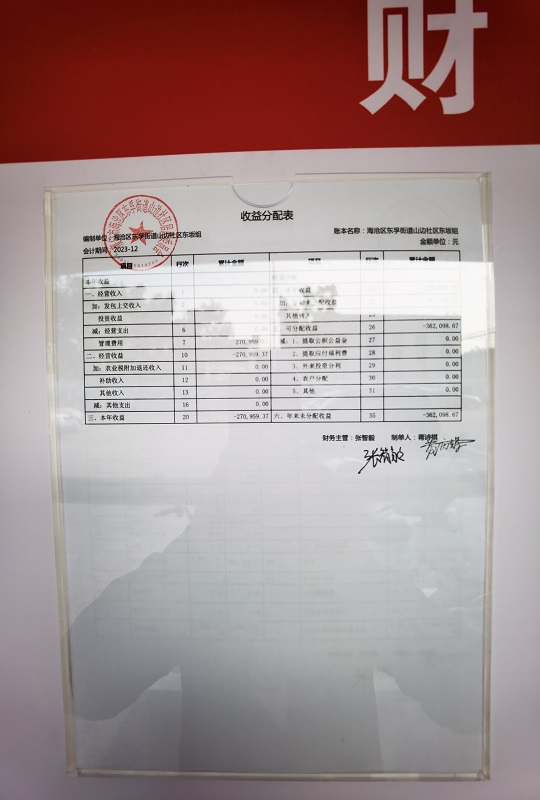 财
收益分配表
编制单位：海沧区东孚街道山边社区东坂组 账本名称：海沧区东孚街道山边社区东坂组
会计期间：2023-12 金额单位：元
项目 行次 累计金额 项目 行次 累计金额
本年收益
一、经营收入
加：发包上交收入
投资收益
减：经营支出 6 0.00 可分配收益 26 -362,098.67
管理费用 7 270,959 减：1、提取公积公益金 27 0.00
二、经营收益 10 -270,959.37 2、提取应付福利费 28 0.00
加：农业税附加返还收入 11 0.00 3、外来投资分利 29 0.00
补助收入 12 0.00 4、农户分配 30 0.00
其他收入 13 0.00 5、其他 31 0.00
减：其他支出 16 0.00
三、本年收益 20 -270,959.37 六、年末未分配收益 35 -362,098.67
财务主管：张智毅 制单人：蒋诗琪